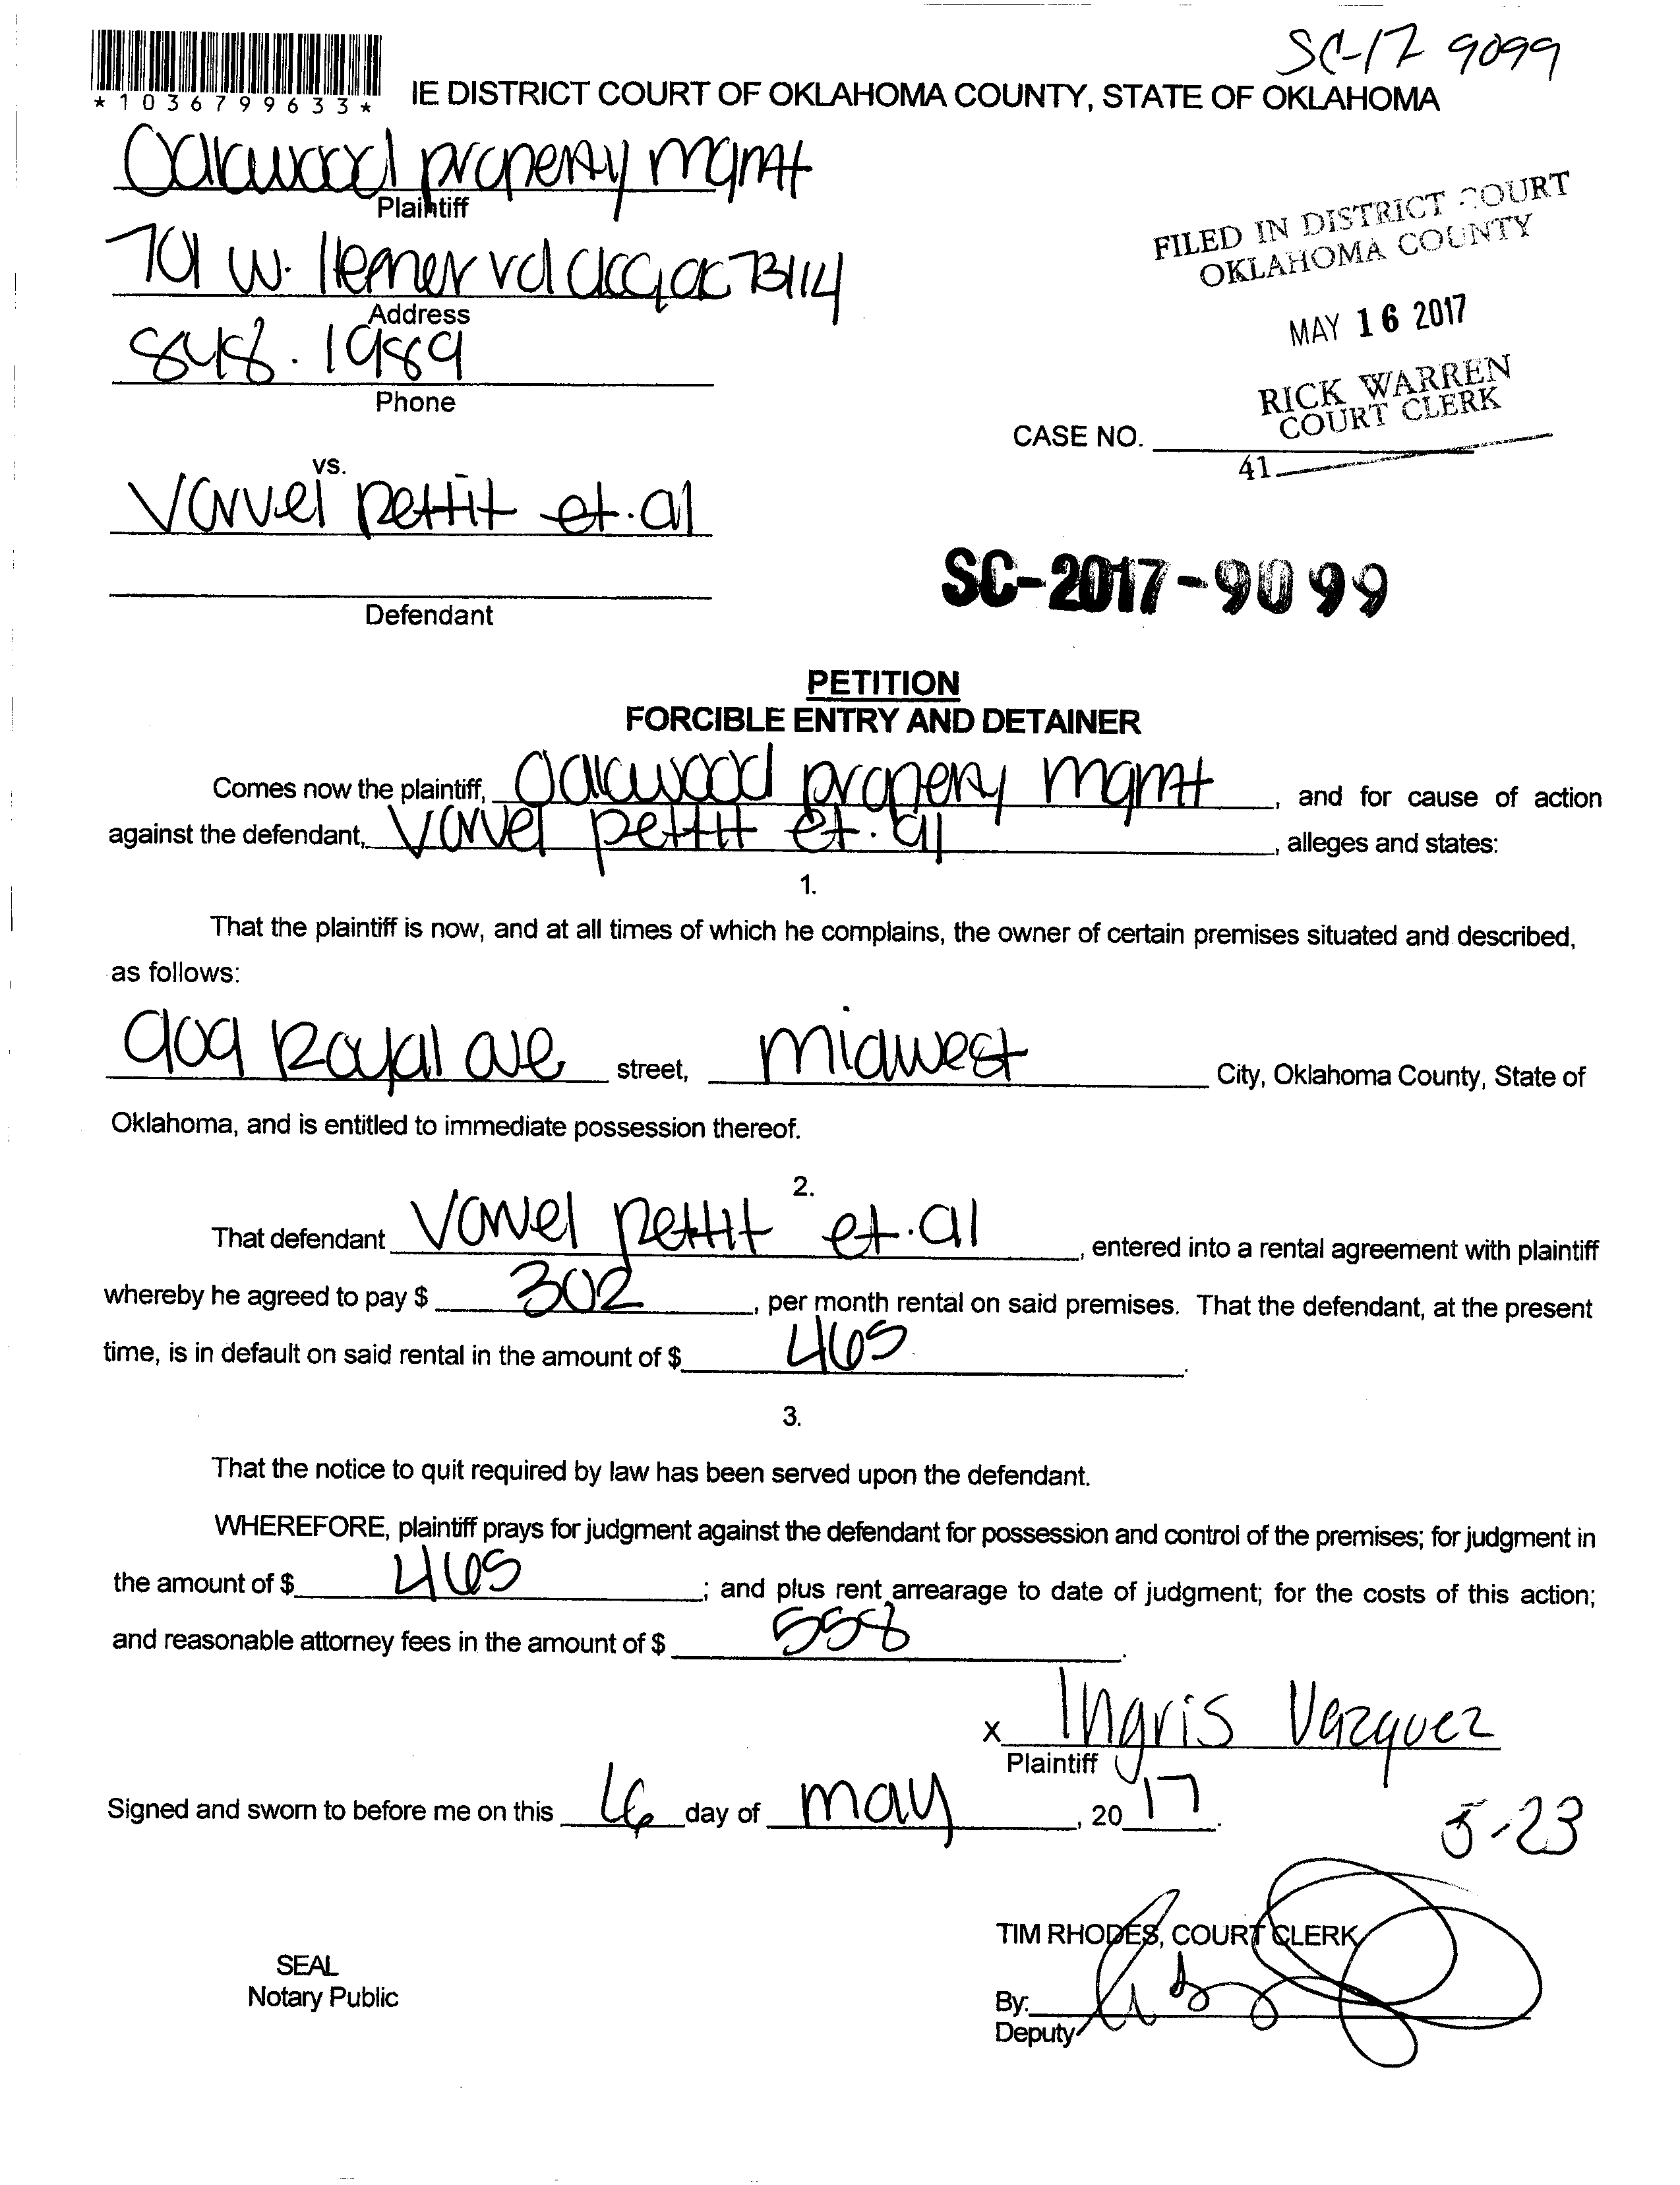 SC-17 9099
*1036799633*
IE DISTRICT COURT OF OKLAHOMA COUNTY, STATE OF OKLAHOMA
Oakwood property mgmt
Plaintiff
701 W. Hefner rd okc, ok 73114
Address
848.1989
Phone
FILED IN DISTRICT COURT
OKLAHOMA COUNTY
MAY 16 2017
RICK WARREN
COURT CLERK
CASE NO.
41
vs.
Varvel pettit et.al
Defendant
SC-2017-9099
PETITION
FORCIBLE ENTRY AND DETAINER
Comes now the plaintiff, Oakwood property mgmt, and for cause of action
against the defendant, Varvel pettit et.al, alleges and states:
1.
That the plaintiff is now, and at all times of which he complains, the owner of certain premises situated and described,
as follows:
909 Royal ave street, midwest City, Oklahoma County, State of
Oklahoma, and is entitled to immediate possession thereof.
2.
That defendant Varvel pettit et.al, entered into a rental agreement with plaintiff
whereby he agreed to pay $ 302, per month rental on said premises. That the defendant, at the present
time, is in default on said rental in the amount of $ 465.
3.
That the notice to quit required by law has been served upon the defendant.
WHEREFORE, plaintiff prays for judgment against the defendant for possession and control of the premises; for judgment in
the amount of $ 465; and plus rent arrearage to date of judgment; for the costs of this action;
and reasonable attorney fees in the amount of $ 558.
x Ingris Vazquez
Plaintiff
Signed and sworn to before me on this 16 day of may, 20 17.
5-23
TIM RHODES, COURT CLERK
SEAL
Notary Public
By:
Deputy